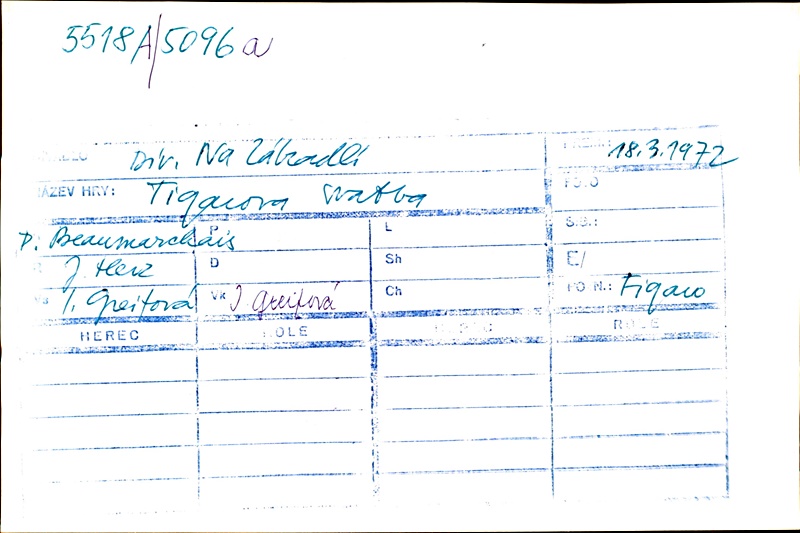 5518A/5096a
Div. Na Zábradlí 18.3.1972
NÁZEV HRY: Figarova svatba
S.B.:
P. Beaumarchais P L
J. Herz D Sh E/
I. Greifová Vk I Greifová Ch PO N.: Figaro
HEREC ROLE HEREC ROLE